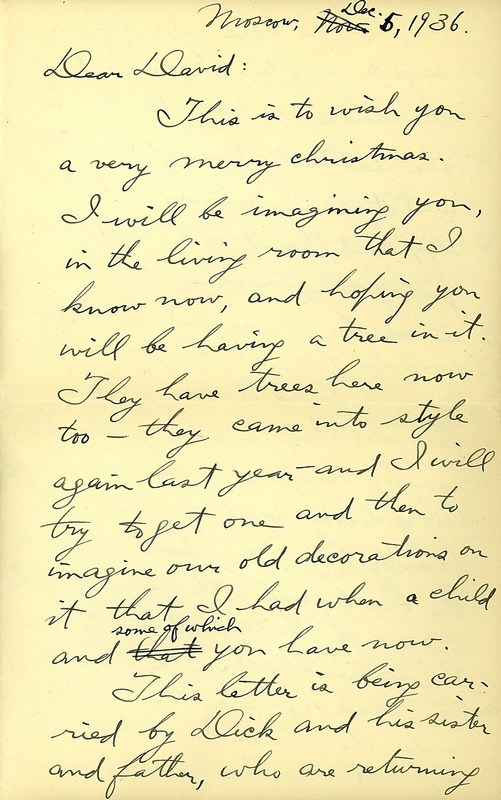 Moscow, Nov. Dec. 5, 1936.
Dear David:
This is to wish you
a very merry christmas.
I will be imagining you,
in the living room that I
know now, and hoping you
will be having a tree in it.
They have trees here now
too — they came into style
again last year — and I will
try to get one and then to
imagine our old decorations on
it that I had when a child
some of which
and that you have now.
This letter is being car-
ried by Dick and his sister
and father, who are returning